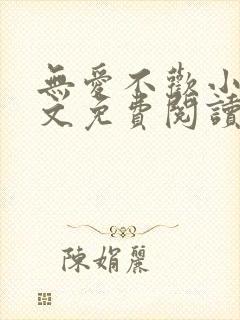 無愛不歡小
文免費閱讀
陳娟麗